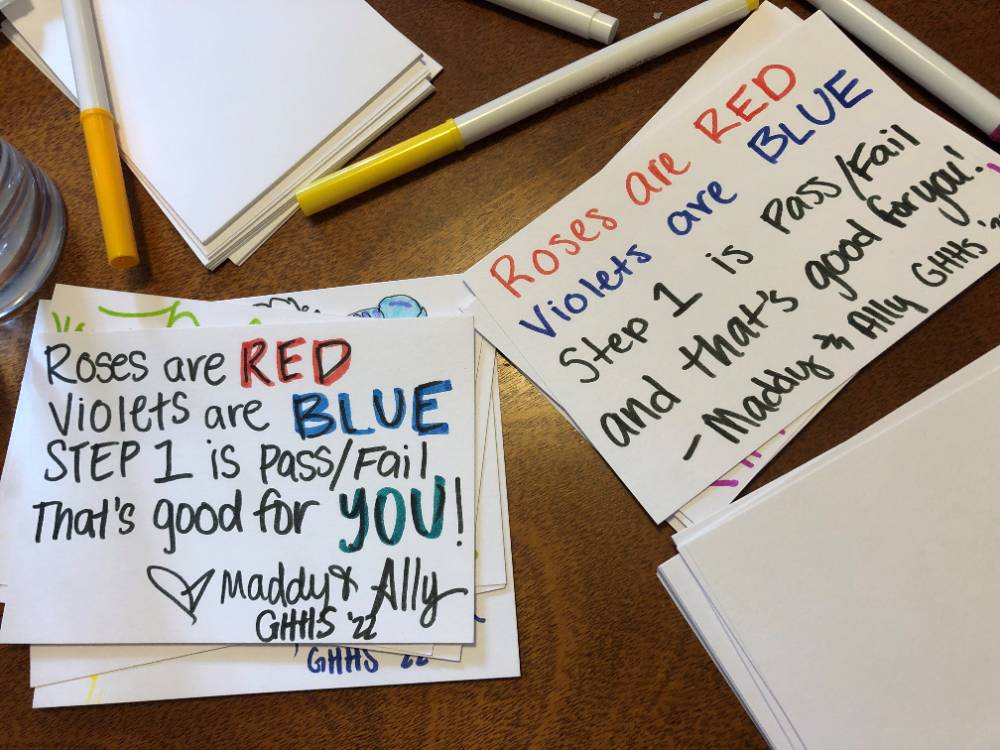 Roses are RED
Violets are BLUE
STEP 1 is Pass/Fail
That's good for YOU!
Maddy & Ally
GHHS '22
GHHS '22
Roses are RED
Violets are BLUE
Step 1 is Pass/Fail
and that's good for you!
- Maddy & Ally GHHS '2